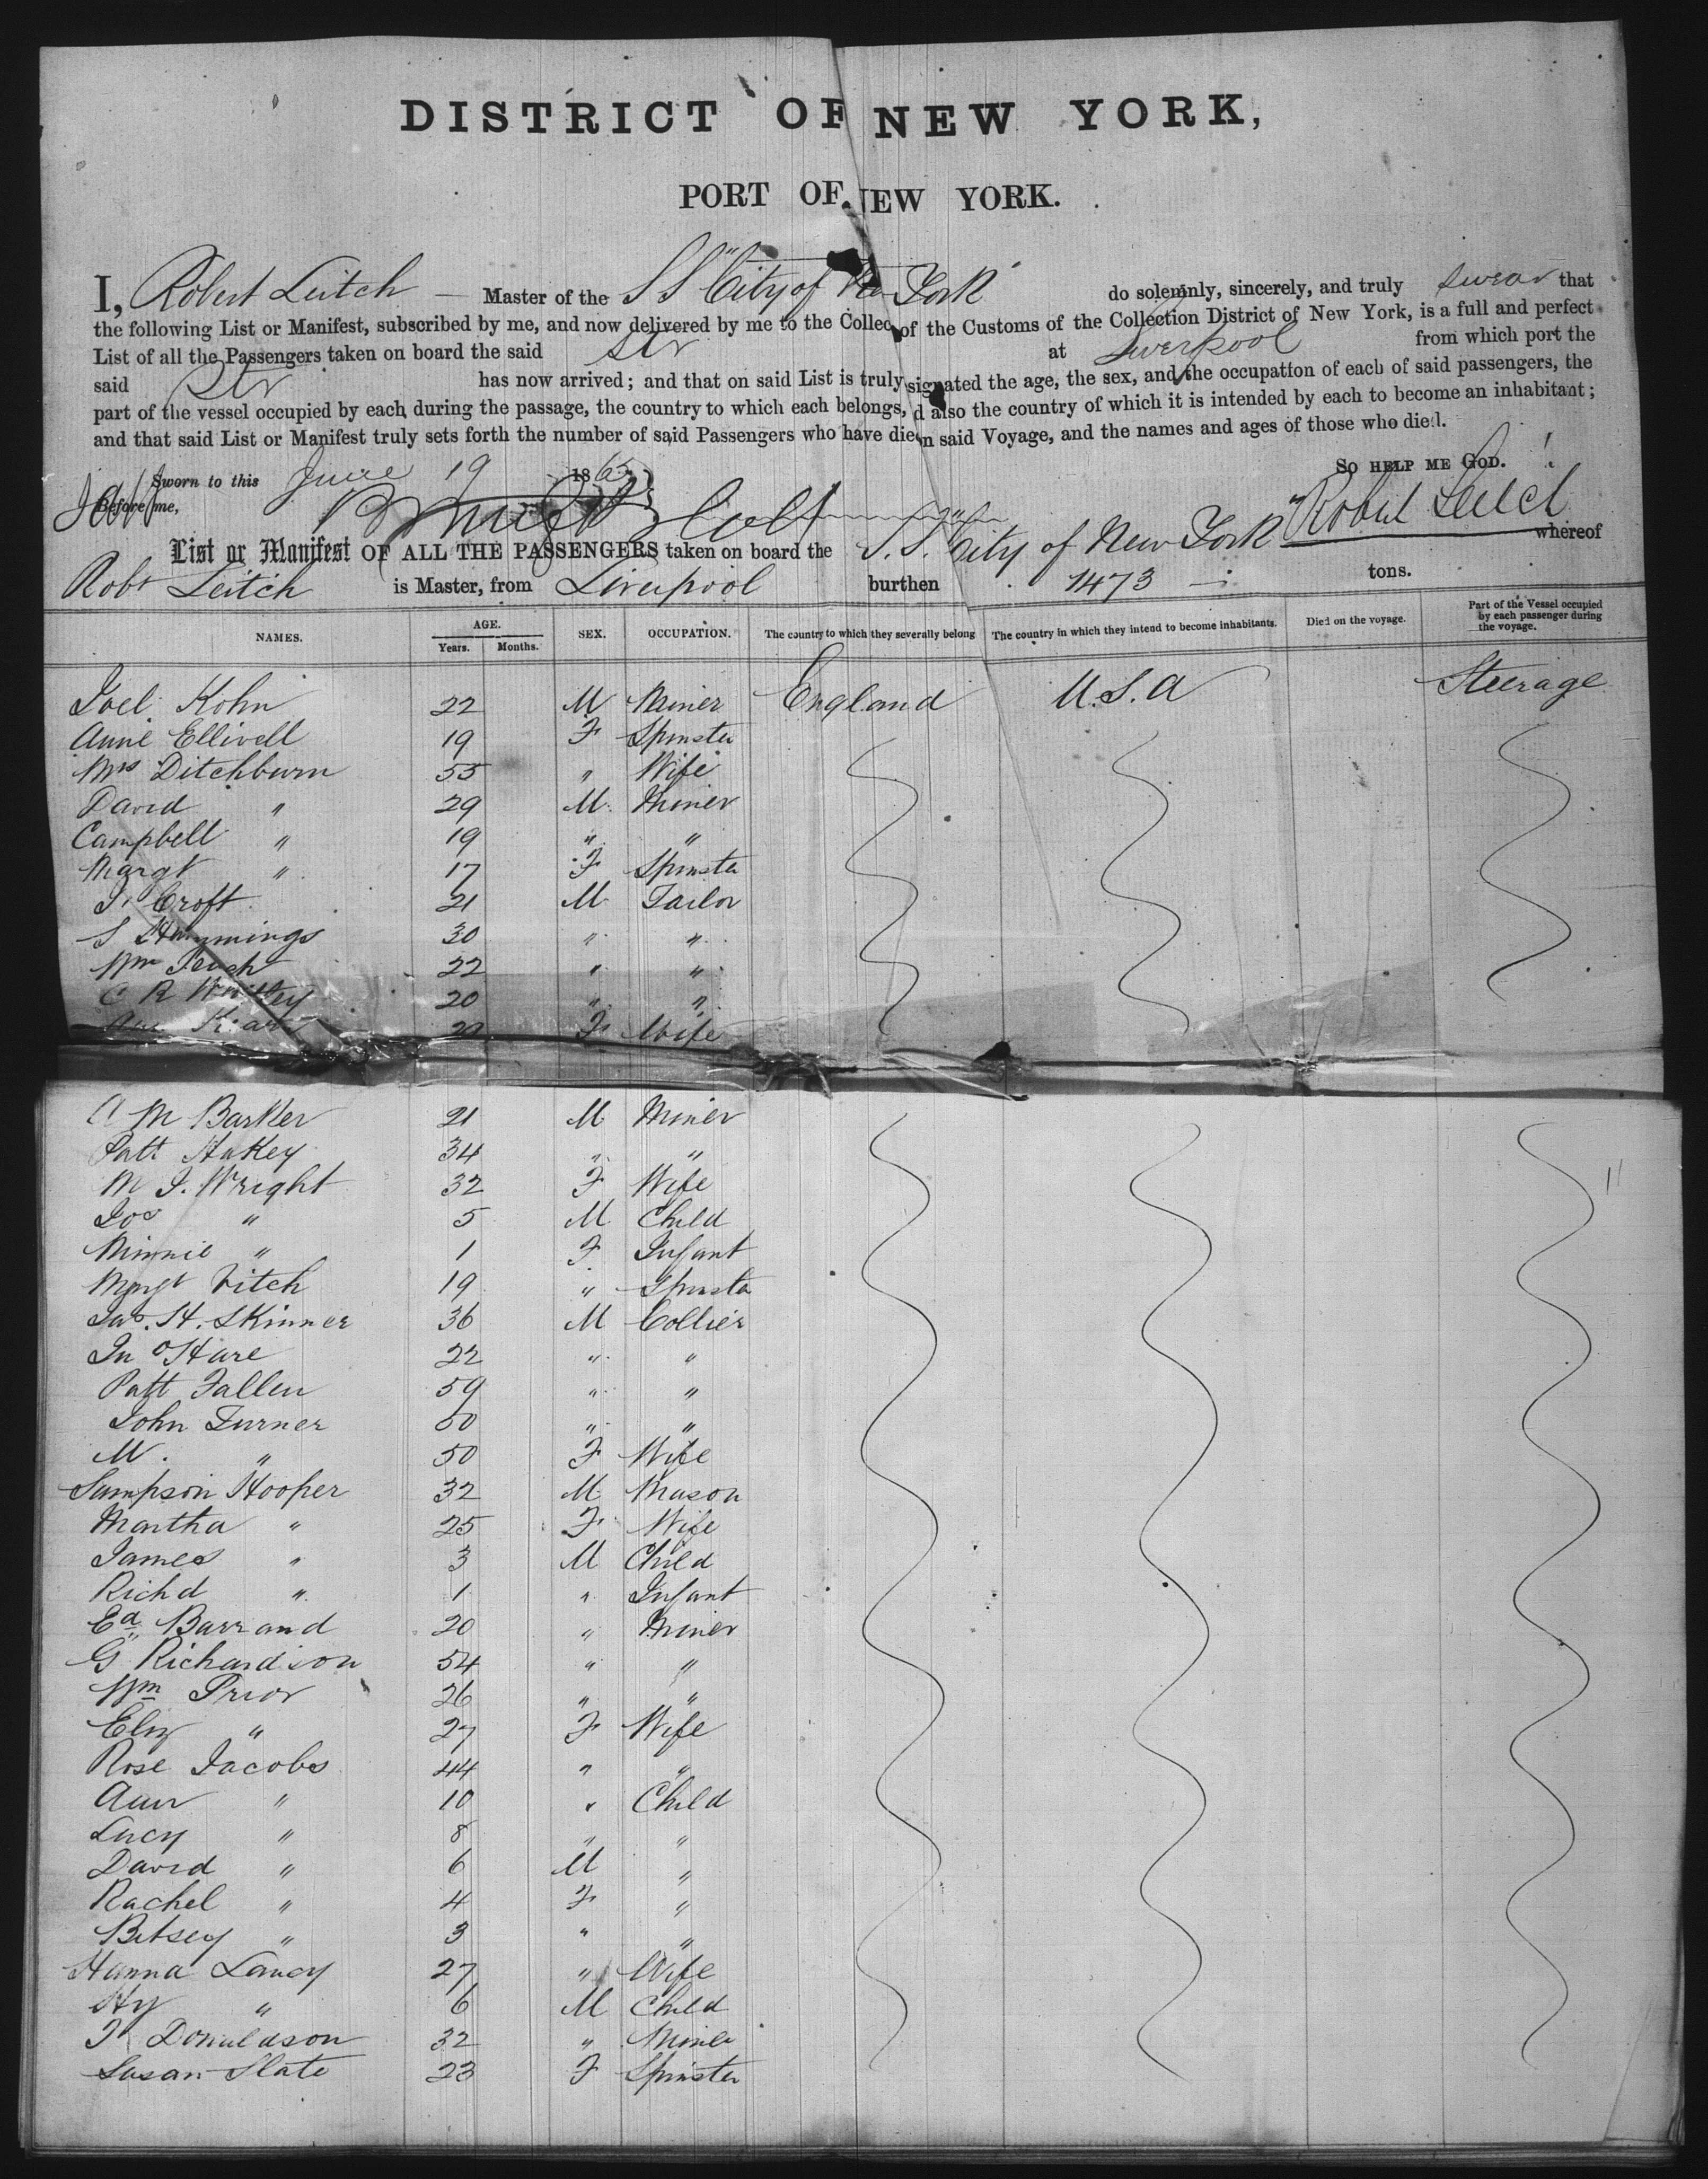 DISTRICT OF NEW YORK,
PORT OF NEW YORK.
I, Robert Leitch — Master of the SS "City of New York" do solemnly, sincerely, and truly swear that
the following List or Manifest, subscribed by me, and now delivered by me to the Collec of the Customs of the Collection District of New York, is a full and perfect
List of all the Passengers taken on board the said Str at Liverpool from which port the
said Str has now arrived; and that on said List is truly signated the age, the sex, and the occupation of each of said passengers, the
part of the vessel occupied by each during the passage, the country to which each belongs, d also the country of which it is intended by each to become an inhabitant;
and that said List or Manifest truly sets forth the number of said Passengers who have died n said Voyage, and the names and ages of those who died.
SO HELP ME GOD.
Sworn to this June 19 1865
Before me,
Robert Leitch
List or Manifest OF ALL THE PASSENGERS taken on board the S.S. "City of New York" whereof
Robt Leitch is Master, from Liverpool burthen 1473 tons.
NAMES. AGE. Years. Months. SEX. OCCUPATION. The country to which they severally belong The country in which they intend to become inhabitants. Died on the voyage. Part of the Vessel occupied by each passenger during the voyage.
Joel Kohn 22 M Miner England U.S.A Steerage
Anne Ellivell 19 F Spinster
Mrs Ditchburn 55 " Wife
David " 29 M Miner
Campbell " 19 " "
Margt " 17 F Spinster
J. Croft 21 M Tailor
S Hemmings 30 " "
Wm 22 " "
C R 20 " "
F Wife
M Barker 21 M Miner
Patt Hakey 34 " "
M J. Wright 32 F Wife
Jos " 5 M Child
Minnie " 1 F Infant
Margt Fitch 19 " Spinster
Jas. H. Skinner 36 M Collier
Jn O'Hare 22 " "
Patt Fallen 59 " "
John Turner 50 " "
M. " 50 F Wife
Sampson Hooper 32 M Mason
Martha " 25 F Wife
James " 3 M Child
Richd " 1 " Infant
Ed Barrand 20 " Miner
G Richardson 54 " "
Wm Prior 26 " "
Eliz " 27 F Wife
Rose Jacobs 44 " "
Ann " 10 " Child
Lucy " 8 " "
David " 6 M "
Rachel " 4 F "
Betsey " 3 " "
Hanna Lancy 27 " Wife
Hy " 6 M Child
J Donaldson 32 " Miner
Susan Slate 23 F Spinster